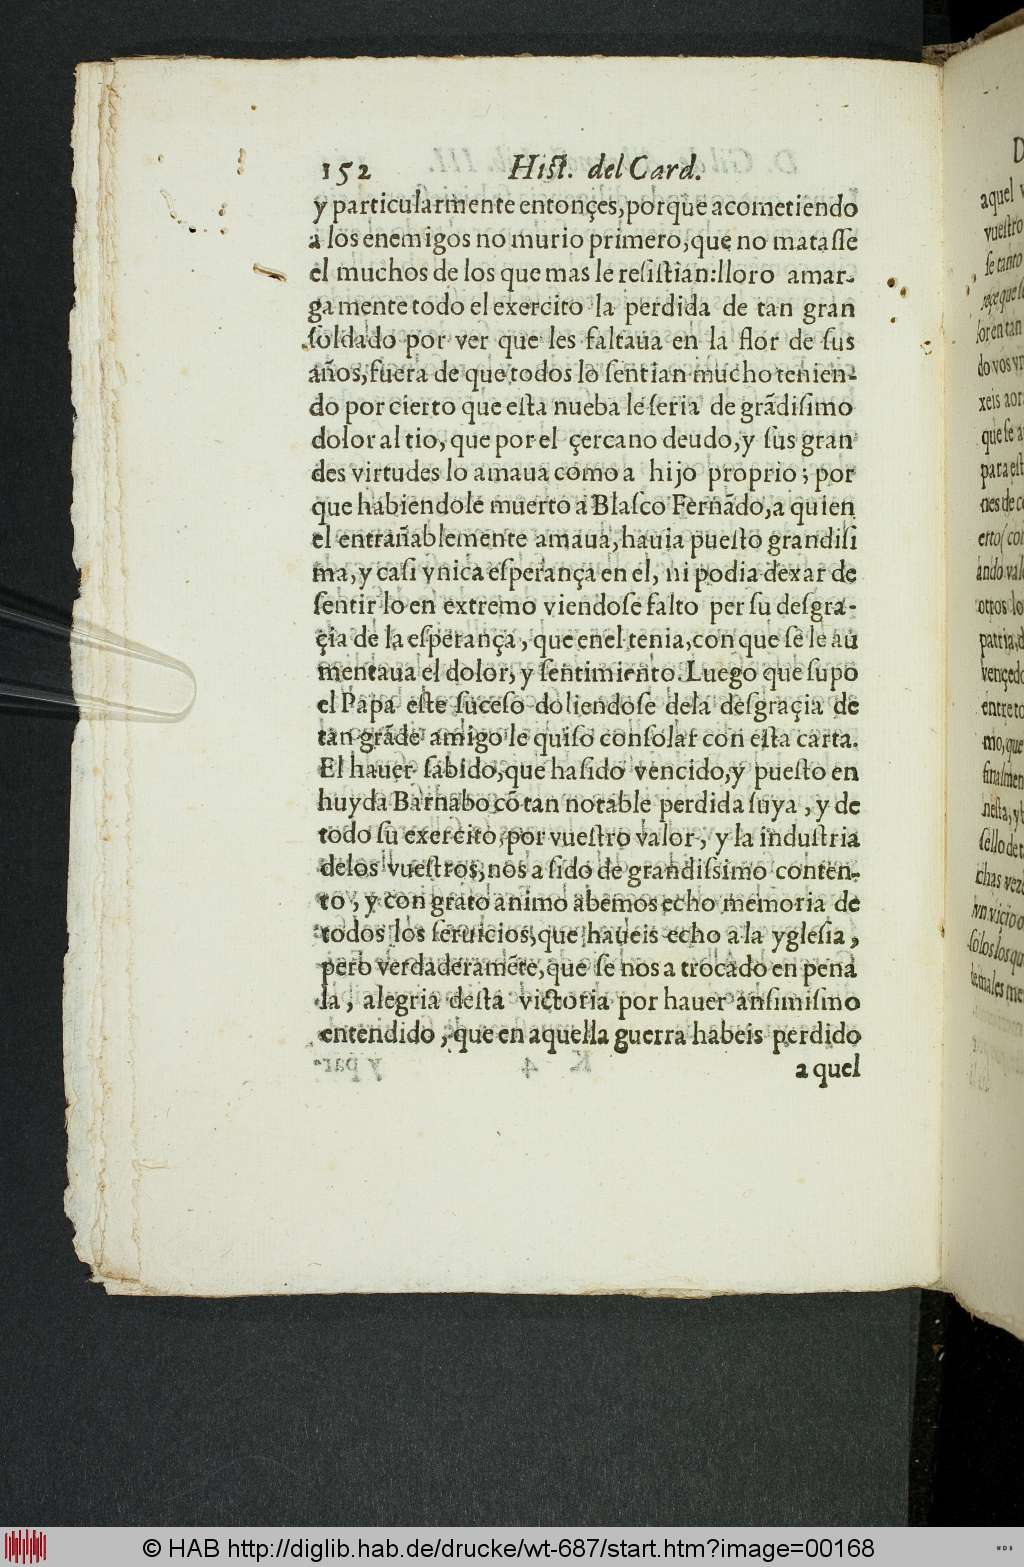 152 Hiſt. del Card.
y particularmente entonçes,porque acometiendo
a los enemigos no murio primero,que no mataſſe
el muchos de los que mas le reſiſtian:lloro amar-
gamente todo el exercito la perdida de tan gran
ſoldado por ver que les faltaua en la flor de ſus
años,fuera de que todos lo ſentian mucho tenien-
do por cierto que eſta nueba le ſeria de grãdiſimo
dolor al tio, que por el çercano deudo,y ſus gran
des virtudes lo amaua como a hijo proprio; por
que habiendole muerto a Blaſco Fernãdo,a quien
el entrañablemente amaua,hauia pueſto grandiſi
ma,y caſi vnica eſperança en el, ni podia dexar de
ſentir lo en extremo viendoſe falto per ſu deſgra-
çia de la eſperança, que enel tenia,con que ſe le au
mentaua el dolor, y ſentimiento. Luego que ſupo
el Papa eſte ſuceſo doliendoſe dela deſgraçia de
tan grãde amigo le quiſo conſolar con eſta carta.
El hauer ſabido,que ha ſido vencido,y pueſto en
huyda Barnabo cõ tan notable perdida ſuya, y de
todo ſu exercito,por vueſtro valor, y la induſtria
delos vueſtros,nos a ſido de grandiſsimo conten-
to, y con grato animo abemos echo memoria de
todos los ſeruicios,que haueis echo a la ygleſia,
pero verdaderamẽte,que ſe nos a trocado en pena
la, alegria deſta victoria por hauer anſimiſmo
entendido, que en aquella guerra habeis perdido
a quel
D
aquel
vueſtro
ſe tanto
do vos
xeis aora
que ſe a
para eſt
nes de
otros lo
patria,
vençedo
entre to
mo,que
finalmen
neſta, y
ſello de
chas vez
vn viçio o
ſo los los qu
© HAB http://diglib.hab.de/drucke/wt-687/start.htm?image=00168